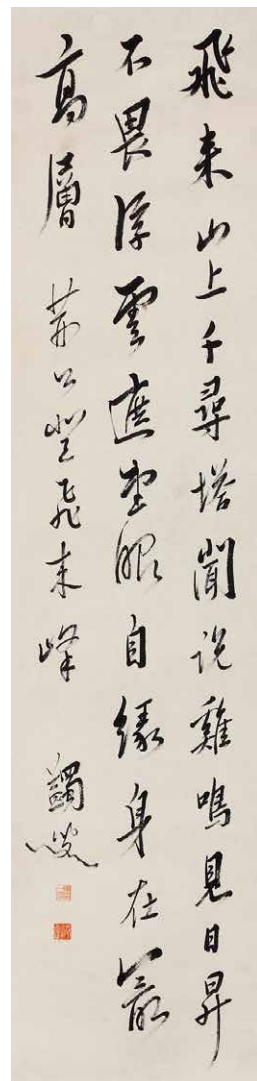 飛来山上千尋塔聞説雞鳴見日昇
不畏浮雲遮望眼自緣身在最
高層 荊公登飛来峰 蠲叟